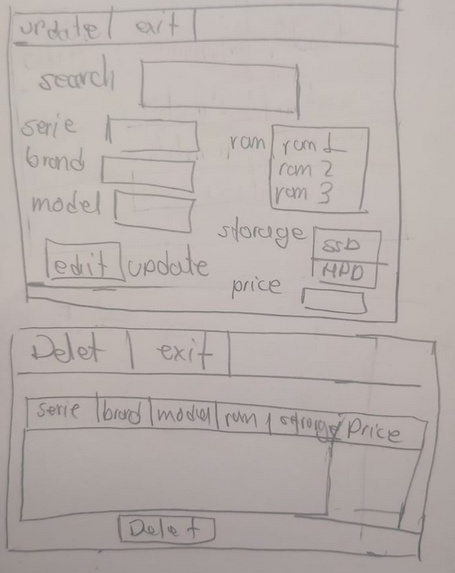 update exit
search
serie
brand
model
ram ram 1
ram 2
ram 3
storage SSD
HDD
edit update
price
Delet exit
serie brand model ram storage Price
Delet